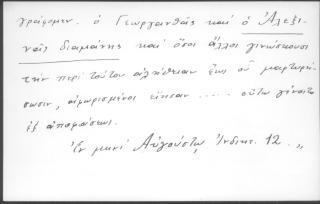 γράφομεν. ὁ Γεωργανθᾶς καὶ ὁ Ἀλεξι-
νᾶς διαμάνης καὶ ὅσοι ἄλλοι γινώσκουσι
τὴν περὶ τούτου ἀλήθειαν ἕως οὗ μαρτυρή-
σωσιν, ἀφωρισμένοι εἴησαν ..... οὕτω γένοιτο
ἐξ ἀποφάσεως.
Ἐν μηνὶ Αὐγούστῳ Ἰνδικτ. 12. "